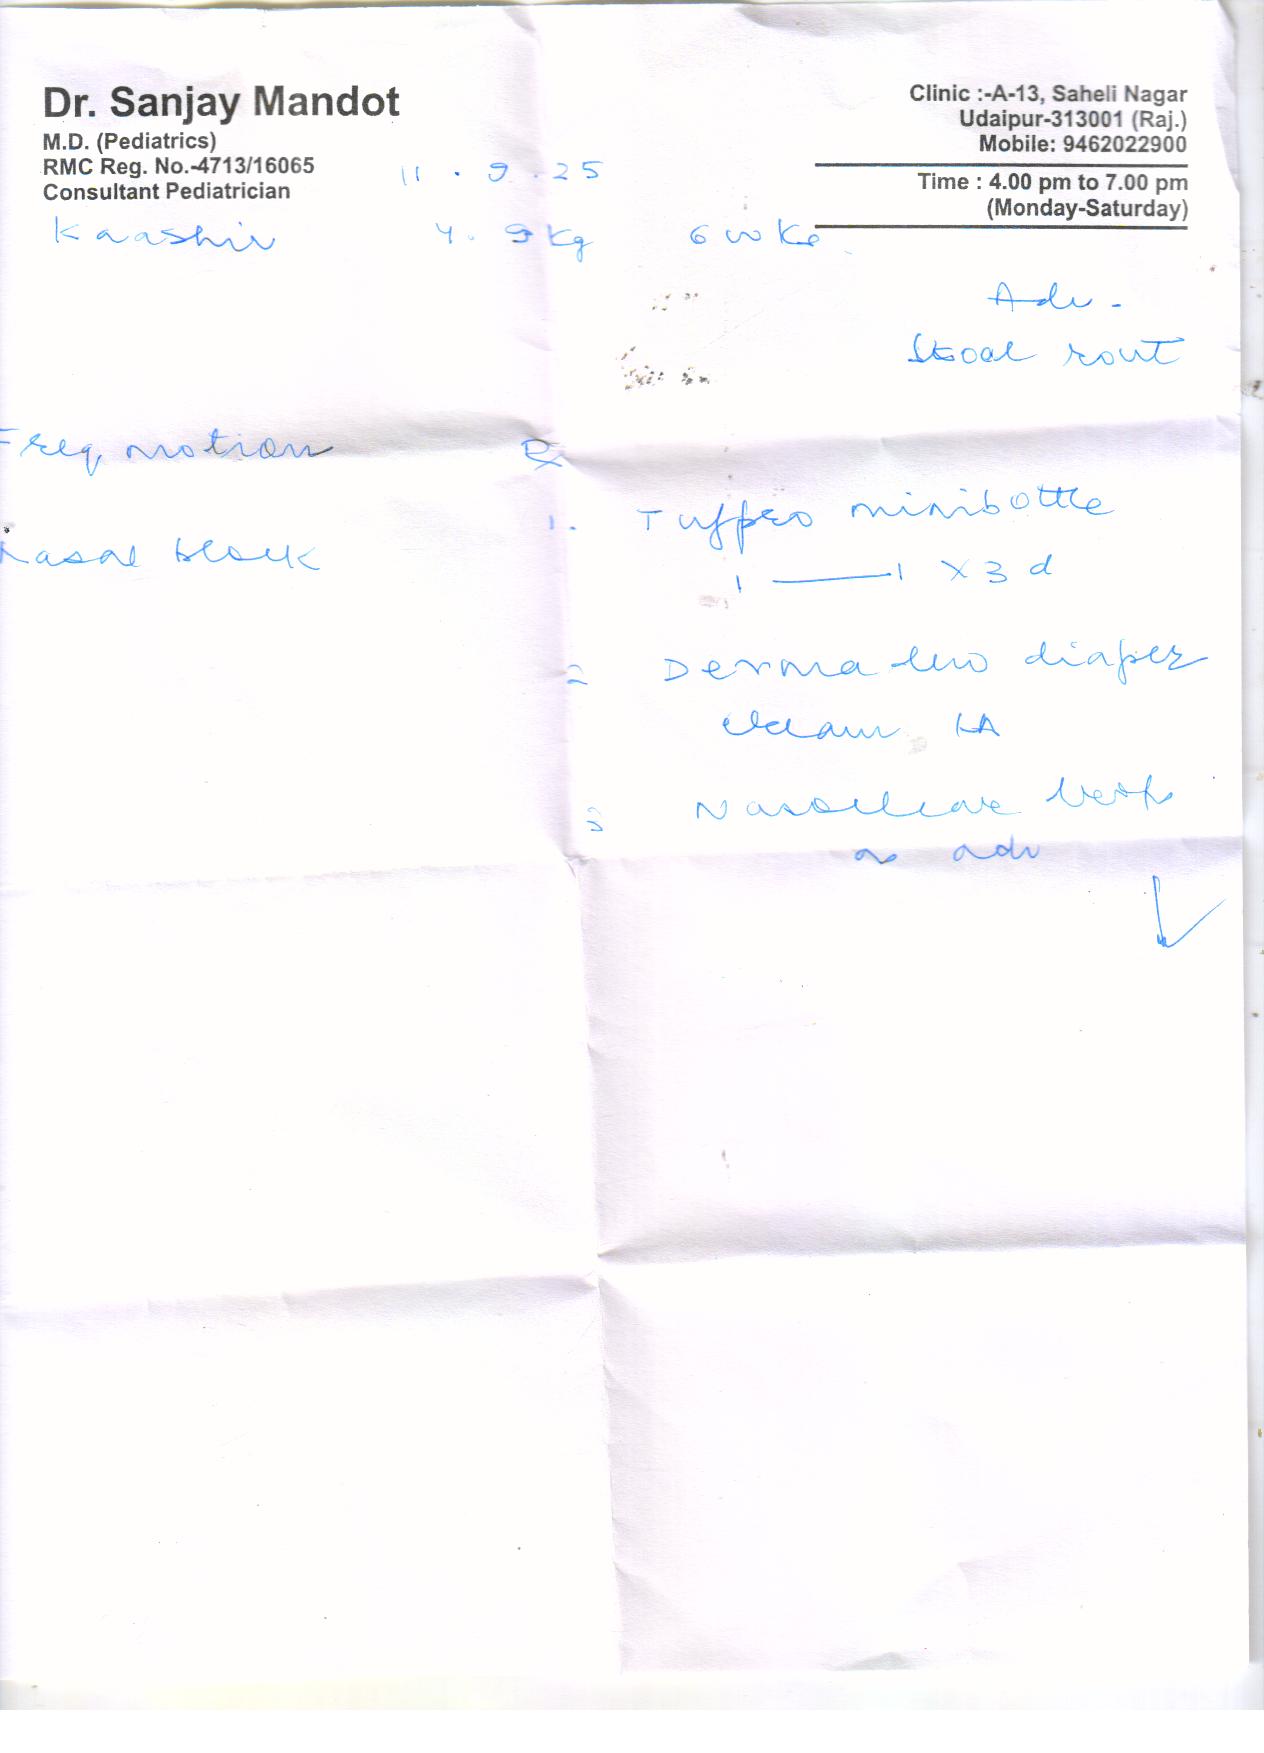 Dr. Sanjay Mandot
M.D. (Pediatrics)
RMC Reg. No.-4713/16065
Consultant Pediatrician
Clinic :-A-13, Saheli Nagar
Udaipur-313001 (Raj.)
Mobile: 9462022900
Time : 4.00 pm to 7.00 pm
(Monday-Saturday)
11 . 9 . 25
4. 9 kg 6 wks
Adv -
Stool rout
Freq motion
Nasal block
Rx
1. minibottle
1 — 1 x 3 d
2 Derma diaper
cream LA
3 Nasoclear
as adv